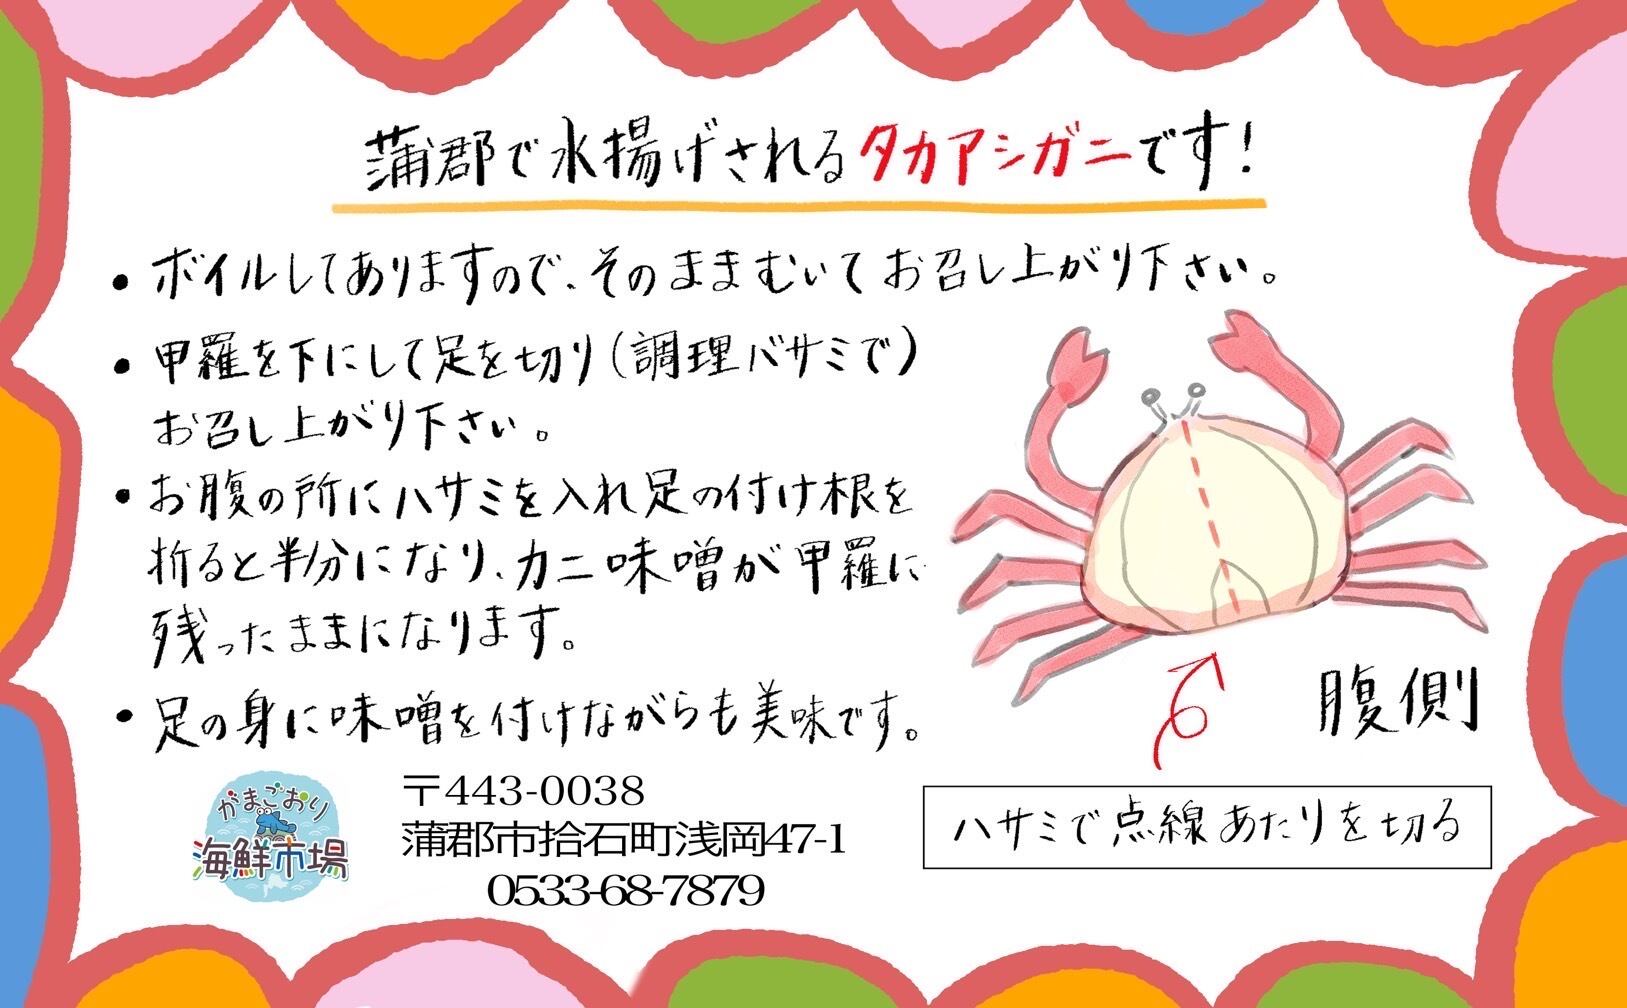 蒲郡で水揚げされるタカアシガニです！
• ボイルしてありますので、そのままむいてお召し上がり下さい。
• 甲羅を下にして足を切り（調理バサミで）
お召し上がり下さい。
• お腹の所にハサミを入れ足の付け根を
折ると半分になり、カニ味噌が甲羅に
残ったままになります。
• 足の身に味噌を付けながらも美味です。
腹側
ハサミで点線あたりを切る
がまごおり
海鮮市場
〒443-0038
蒲郡市拾石町浅岡47-1
0533-68-7879